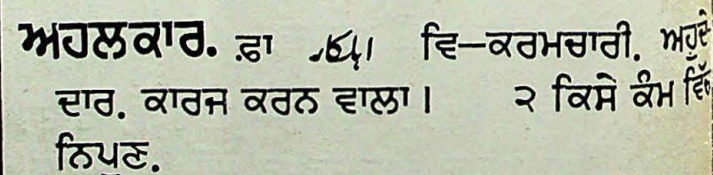 ਅਹਲਕਾਰ. ਫ਼ਾ اہلکار ਵਿ–ਕਰਮਚਾਰੀ. ਅਹੁਦੇ
ਦਾਰ. ਕਾਰਜ ਕਰਨ ਵਾਲਾ। ੨ ਕਿਸੇ ਕੰਮ ਵਿੱਚ
ਨਿਪੁਣ.